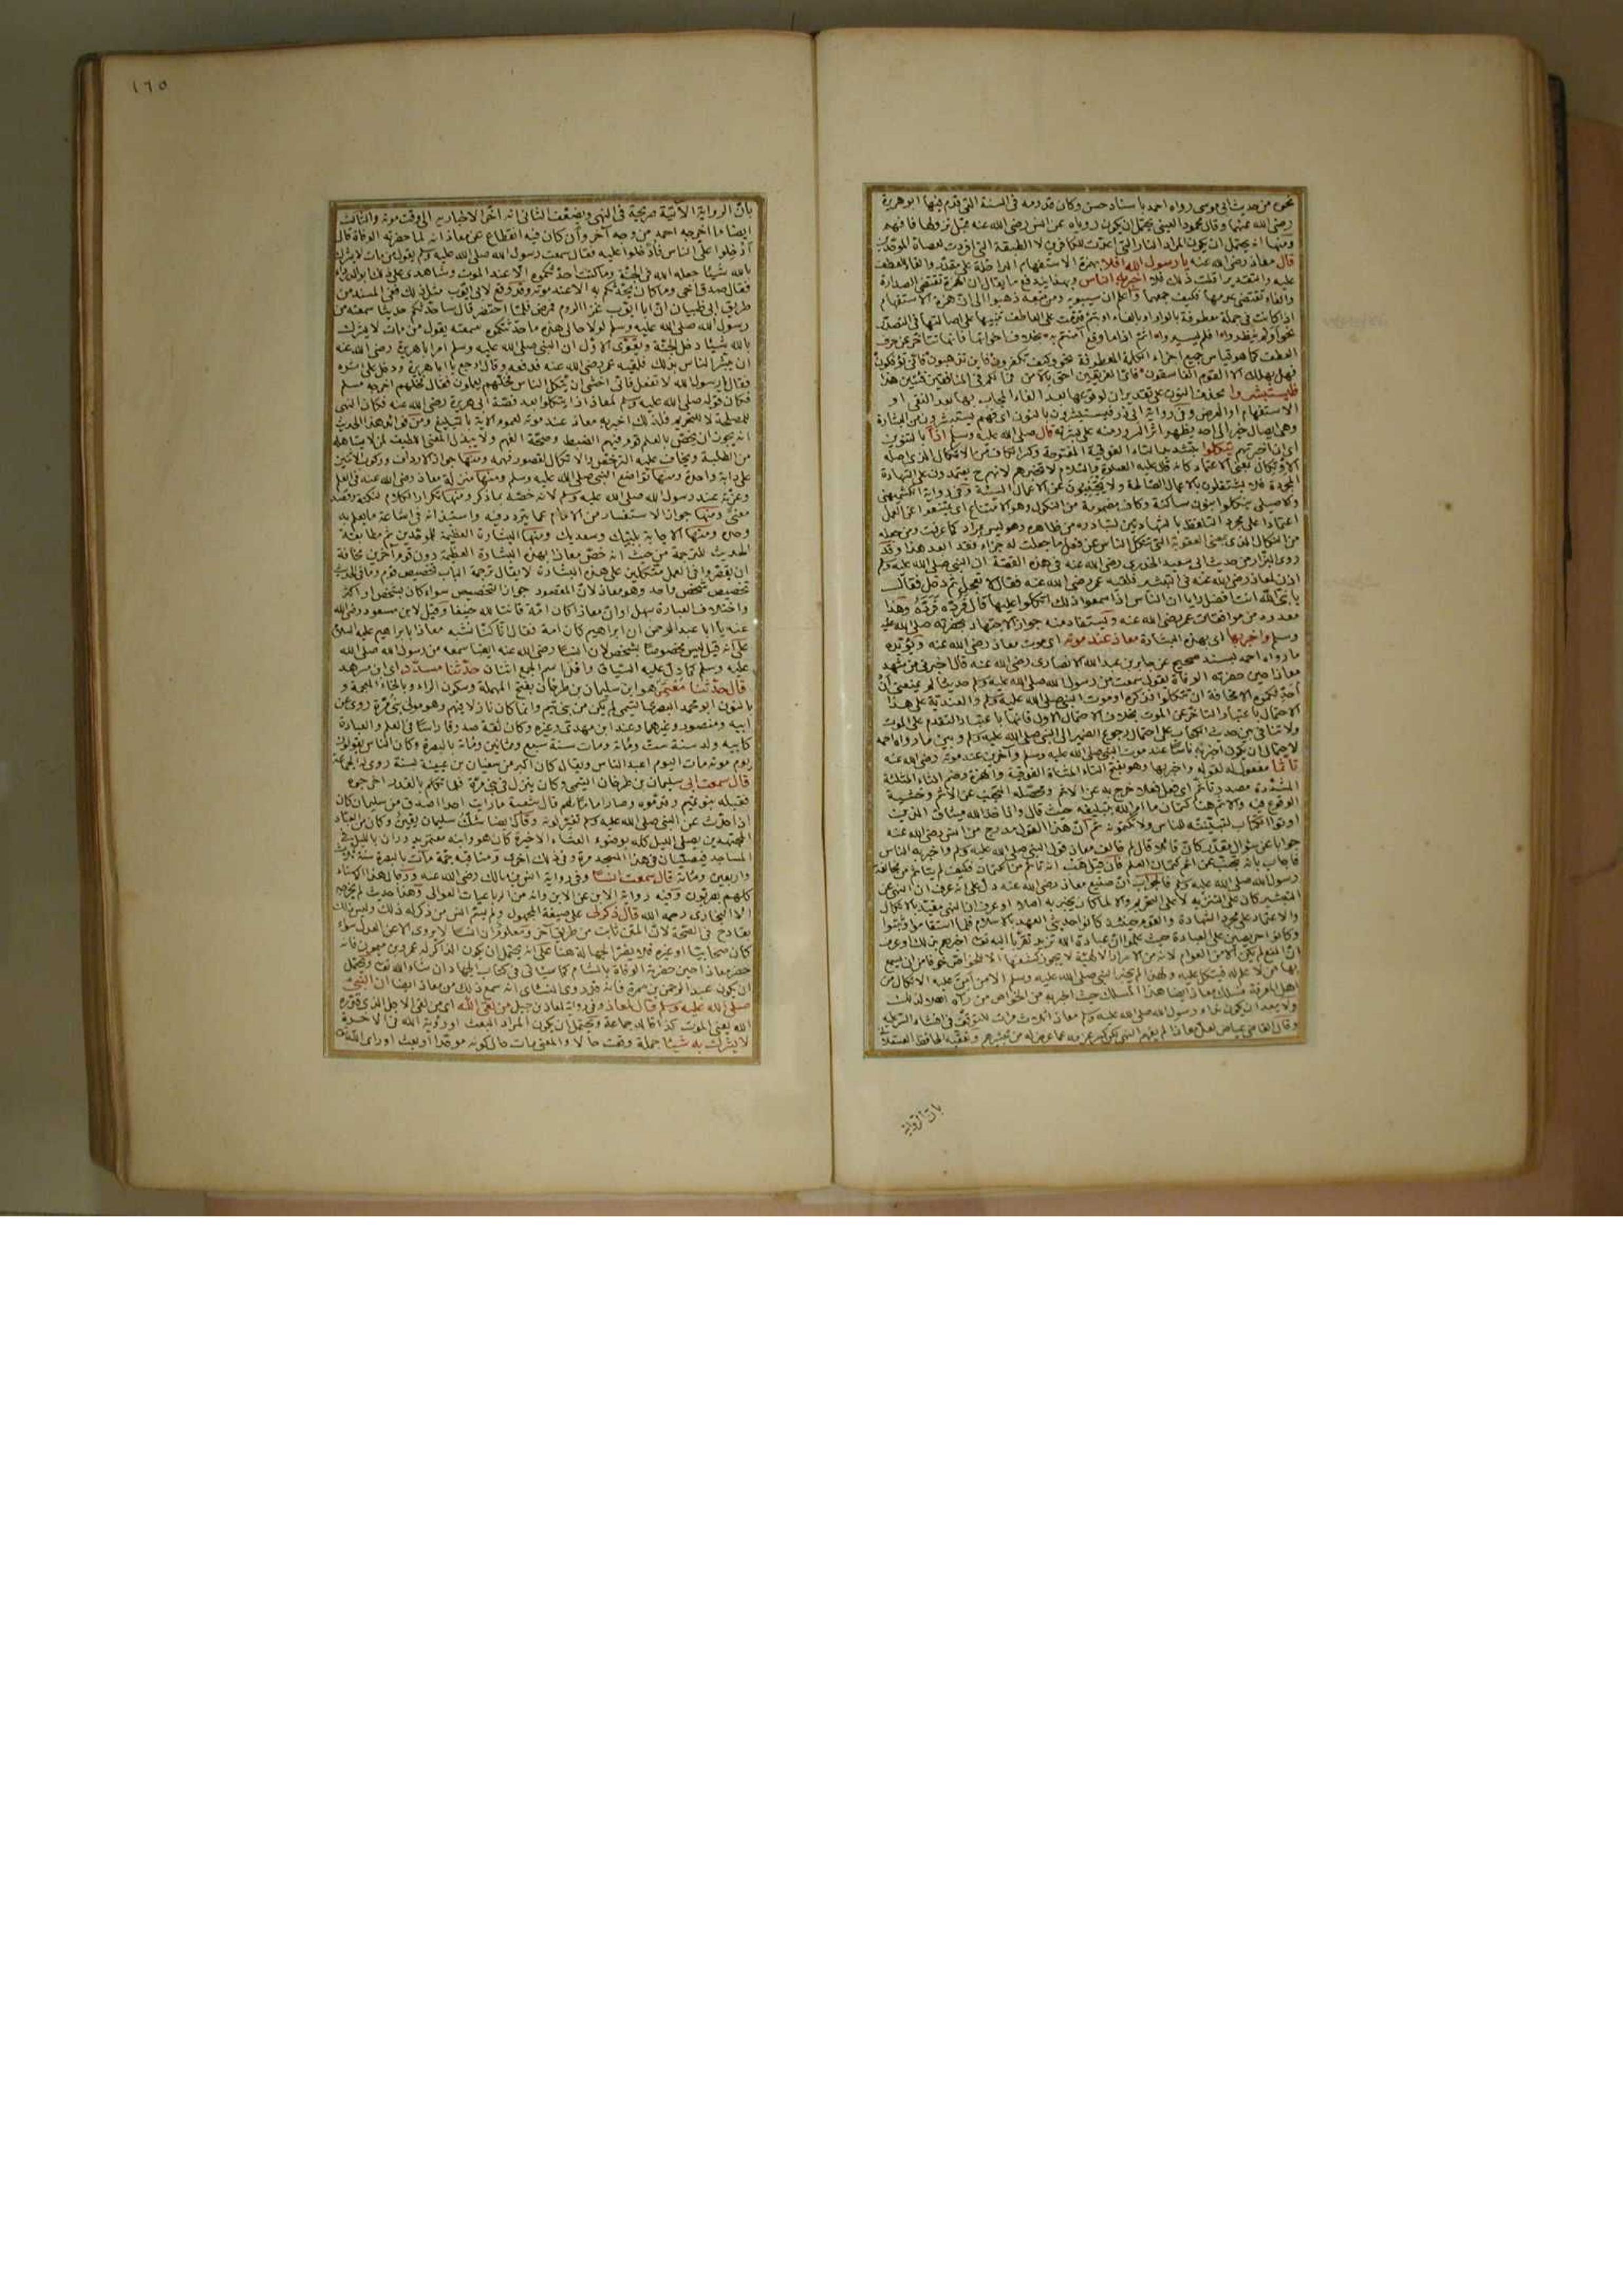 نحوه من حديث ابى موسى رواه احمد باسناد حسن وكان قدومه فى السنة التى قدم فيها ابو هريرة
رضى الله عنهما وقال محمود العينى يحتمل ان يكون روياه عن انس رضى الله عنه قبل نزولها فافهم
ومنها انه يحتمل ان يكون المراد النار التى اعدت للكافرين لا الطبقة التى افردت لعصاة الموحدين
قال معاذ رضى الله عنه يا رسول الله افلا بهمزة الاستفهام الداخلة على مقدر والفاء للعطف
عليه والتقدير اقلت ذلك فلا اخبر به الناس وبهذا يندفع ما يقال ان الهمزة تقتضى الصدارة
والفاء تقتضى عدمها فكيف جمعهما واعلم ان سيبويه ومن تبعه ذهبوا الى ان همزة الاستفهام
اذا كانت فى جملة معطوفة بالواو او بالفاء او بثم قدمت على العاطف تنبيها على اصالتها فى التصدر
نحو اولم ينظروا افلم يسيروا اثم اذا ما وقع آمنتم به بخلاف اخواتها فانها تتأخر عن حرف
العطف كما هو قياس جميع اجزاء الجملة المعطوفة نحو وكيف تكفرون فاين تذهبون فانى تؤفكون
فهل يهلك الا القوم الفاسقون فاى الفريقين احق بالامن فما لكم فى المنافقين فئتين هذا
فليستبشروا بحذف النون على تقدير ان لوقوعها بعد الفاء المجاب بها بعد النفى او
الاستفهام او العرض وفى رواية ابى ذر فيستبشرون بالنون اى فهم يستبشرون من البشارة
وهى ايصال خبر الى احد يظهر اثر السرور منه على بشرته قال صلى الله عليه وسلم اذا بالتنوين
اى ان اخبرتهم يتكلوا بتشديد المثناة الفوقية المفتوحة وكسر الكاف من الاتكال الذى اصله
الاوتكال بمعنى الاعتماد كانه قال عليه الصلوة والسلام لا تخبرهم لانهم ح يعتمدون على الشهادة
المجردة فلا يشتغلون بالاعمال الصالحة ولا يجتنبون عن الاعمال السيئة وفى رواية الكشميهنى
والاصيلى ينكلوا بنون ساكنة وكاف مضمومة من النكول وهو الامتناع اى يمتنعوا عن العمل
اعتمادا على مجرد التلفظ بالشهادتين لتبادره من ظاهره وهو ليس بمراد كما عرفت ومن جعله
من النكال الذى بمعنى العقوبة التى تنكل الناس عن فعل ما جعلت له جزاء فقد ابعد هذا وقد
روى البزار من حديث ابى سعيد الخدرى رضى الله عنه فى هذه القصة ان النبى صلى الله عليه وسلم
اذن لمعاذ رضى الله عنه فى التبشير فلقيه عمر رضى الله عنه فقال لا تعجل ثم دخل فقال
يا نبى الله انت افضل رايا ان الناس اذا سمعوا ذلك اتكلوا عليها قال فرده فرده وهذا
معدود من موافقات عمر رضى الله عنه ويستفاد منه جواز الاجتهاد بحضرته صلى الله عليه
وسلم واخبر بها اى بهذه البشارة معاذ عند موته اى موت معاذ رضى الله عنه ويؤيده
ما رواه احمد بسند صحيح عن جابر بن عبد الله الانصارى رضى الله عنه قال اخبرنى من شهد
معاذا حين حضرته الوفاة يقول سمعت من رسول الله صلى الله عليه وسلم حديثا لم يمنعنى ان
احدثكموه الا مخافة ان تتكلوا فذكره او موت النبى صلى الله عليه وسلم والعندية على هذا
الاحتمال باعتبار التأخر عن الموت بخلاف الاحتمال الاول فانها باعتبار التقدم على الموت
ولا تنافى بين حديث الكتاب على احتمال رجوع الضمير الى النبى صلى الله عليه وسلم وبين ما رواه احمد
لاحتمال ان يكون اخبر به ناسا عند موت النبى صلى الله عليه وسلم وآخرين عند موته رضى الله عنه
تأثما مفعول له لقوله واخبر بها وهو بفتح التاء المثناة الفوقية والهمزة وضم الثاء المثلثة
المشددة مصدر تأثم اى فعل فعلا خرج به عن الاثم ومحصله التجنب عن الاثم وخشية
الوقوع فيه والاثم هنا كتمان ما امر الله بتبليغه حيث قال واذ اخذ الله ميثاق الذين
اوتوا الكتاب لتبيننه للناس ولا تكتمونه ثم ان هذا القول مدرج من انس رضى الله عنه
جوابا عن سؤال مقدر كان قائلا قال لم خالف معاذ قول النبى صلى الله عليه وسلم واخبر به الناس
فاجاب بانه تجنب عن اثم كتمان العلم فان قيل هب انه تأثم من الكتمان فكيف لم يتأثم من مخالفة
رسول الله صلى الله عليه وسلم فالجواب ان صنيع معاذ رضى الله عنه دل على انه عرف ان النهى عن
التبشير كان على التنزيه لا على التحريم والا لما كان يخبر به اصلا او عرف ان النهى مقيد بالاتكال
والاعتماد على مجرد الشهادة والقوم حينئذ كانوا حديثى العهد بالاسلام فلما استقاموا وثبتوا
وكانوا حريصين على العبادة حيث علموا ان عبادة الله تزيد تقربا اليه تع اخبرهم بذلك او عرف
ان المنع لم يكن الا من العوام لانه من الاسرار الالهية لا يجوز كشفها الا للخواص خوفا من ان يسمع
بها من لا علم له فيتكل عليه ولهذا لم يخبر النبى صلى الله عليه وسلم الا من امن عليه الاتكال من
اهل المعرفة فسلك معاذ ايضا هذا المسلك حيث اخبر به من الخواص من رآه اهلا لذلك
ولا يبعد ان يكون نداء رسول الله صلى الله عليه وسلم معاذ ثلاث مرات للتوقف فى افشاء السر عليه
وقال القاضى عياض لعل معاذا لم يفهم النهى لكن كسر عزمه عما عرض له من تبشيرهم وتعقبه الحافظ العسقلانى
بان الرواية
١٦٥
بان الرواية الآتية صريحة فى النهى ويضعف الثانى انه اخر الاخبار به الى وقت موته والثالث
ايضا ما اخرجه احمد من وجه آخر وان كان فيه انقطاع عن معاذ انه لما حضرته الوفاة قال
ادخلوا على الناس فادخلوا عليه فقال سمعت رسول الله صلى الله عليه وسلم يقول من مات لا يشرك
بالله شيئا جعله الله فى الجنة وما كنت احدثكموه الا عند الموت وشاهدى على ذلك ابو الدرداء
فقال صدق اخى وما كان يحدثكم به الا عند موته وقد وقع لابى ايوب مثل ذلك ففى المسند من
طريق ابى ظبيان ان ابا ايوب غزا الروم فمرض فلما احتضر قال ساحدثكم حديثا سمعته من
رسول الله صلى الله عليه وسلم لولا حالى هذه ما حدثتكموه سمعته يقول من مات لا يشرك
بالله شيئا دخل الجنة ويقوى الاول ان النبى صلى الله عليه وسلم امر ابا هريرة رضى الله عنه
ان يبشر الناس بذلك فلقيه عمر رضى الله عنه فدفعه وقال ارجع يا ابا هريرة ودخل على اثره
فقال يا رسول الله لا تفعل فانى اخشى ان يتكل الناس فخلهم يعملون فقال فخلهم اخرجه مسلم
فكان قوله صلى الله عليه وسلم لمعاذ اذا يتكلوا بعد قصة ابى هريرة رضى الله عنه فكان النهى
للمصلحة لا للتحريم فلذلك اخبر به معاذ عند موته لعموم الآية بالتبليغ ومن فوائد هذا الحديث
انه يجوز ان يخص بالعلم قوم فيهم الضبط وصحة الفهم ولا يبذل المعنى اللطيف لمن لا يستاهله
من الطلبة ويخاف عليه الترخص والاتكال لقصور فهمه ومنها جواز الارداف وركوب الاثنين
على دابة واحدة ومنها تواضع النبى صلى الله عليه وسلم ومنها منزلة معاذ رضى الله عنه فى العلم
وعزته عند رسول الله صلى الله عليه وسلم لانه خصه بما ذكر ومنها تكرار الكلام لنكتة وقصد
معنى ومنها جواز الاستفسار من الامام عما يتردد فيه واستيذانه فى اشاعة ما يعلم به
وحده ومنها الاجابة بلبيك وسعديك ومنها البشارة العظيمة للموحدين ثم مطابقة
الحديث للترجمة من حيث انه خص معاذا بهذه البشارة العظيمة دون قوم آخرين مخافة
ان يقصروا فى العمل متكلين على هذه البشارة لا يقال ترجمة الباب تخصيص قوم وما فى الحديث
تخصيص شخص واحد وهو معاذ لان المقصود جواز التخصيص سواء كان بشخص او اكثر
واختلاف العبارة سهل او ان معاذا كان امة قانتا لله حنيفا وقيل لابن مسعود رضى الله
عنه يا ابا عبد الرحمن ان ابراهيم كان امة فقال انا كنا نشبه معاذا بابراهيم عليه السلام
على انه قيل ليس مخصوصا بشخص لان انسا رضى الله عنه ايضا سمعه من رسول الله صلى الله
عليه وسلم كما دل عليه السياق واقل اسم الجمع اثنان حدثنا مسدد اى ابن مسرهد
قال حدثنا معتمر هو ابن سليمان بن طرخان بفتح المهملة وسكون الراء وبالخاء المعجمة و
بالنون ابو محمد البصرى التيمى لم يكن من بنى تيم وانما كان نازلا فيهم وهو مولى بنى مرة روى عن
ابيه ومنصور وغيرهما وعنه ابن مهدى وغيره وكان ثقة صدوقا راسا فى العلم والعبادة
كابيه ولد سنة ست ومائة ومات سنة سبع وثمانين ومائة بالبصرة وكان الناس يقولون
يوم موته مات اليوم اعبد الناس ويقال كان اكبر من سفيان بن عيينة بسنة روى له الجماعة
قال سمعت ابى سليمان بن طرخان التيمى وكان ينزل فى بنى مرة فلما تكلم بالقدر اخرجوه
فقبله بنو تميم وقدموه وصار اماما لهم قال شعبة ما رايت احدا اصدق من سليمان كان
اذا حدث عن النبى صلى الله عليه وسلم تغير لونه وقال ايضا شك سليمان يقين وكان من العباد
المجتهدين يصلى الليل كله بوضوء العشاء الاخيرة كان هو وابنه معتمر يدوران بالليل فى
المساجد فيصليان فى هذا المسجد مرة وفى ذلك اخرى ومناقبه جمة مات بالبصرة سنة ثلاث
واربعين ومائة قال سمعت انسا وفى رواية انس بن مالك رضى الله عنه ورجال هذا الاسناد
كلهم بصريون وفيه رواية الابن عن الاب وانه من الرباعيات العوالى وهذا حديث لم يخرجه
الا البخارى رحمه الله قال ذكر لى على صيغة المجهول ولم يسم انس من ذكر له ذلك وليس ذلك
بقادح فى الصحة لان المتن ثابت من طريق آخر ومعلوم ان انسا لا يروى الا عن العدل سواء
كان صحابيا او غيره فلا يضر الجهالة هنا على انه يحتمل ان يكون الذاكر له عمرو بن ميمون فانه
حضر معاذا حين حضرته الوفاة بالشام كما سياتى فى كتاب الجهاد ان شاء الله تع ويحتمل
ان يكون عبد الرحمن بن سمرة فانه قد روى النسائى انه سمع ذلك من معاذ ايضا ان النبى
صلى الله عليه وسلم قال لمعاذ وفى رواية لمعاذ بن جبل من لقى الله اى من لقى الاجل الذى قدره
الله يعنى الموت كذا قاله جماعة ويحتمل ان يكون المراد البعث او رؤية الله فى الآخرة
لا يشرك به شيئا جملة وقعت حالا والمعنى مات حال كونه موحدا او بعث او راى الله